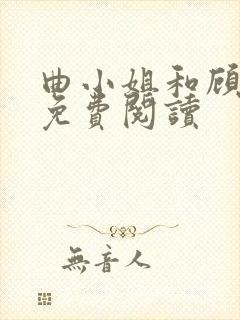 曲小姐和顾
免費閱讀
無音人